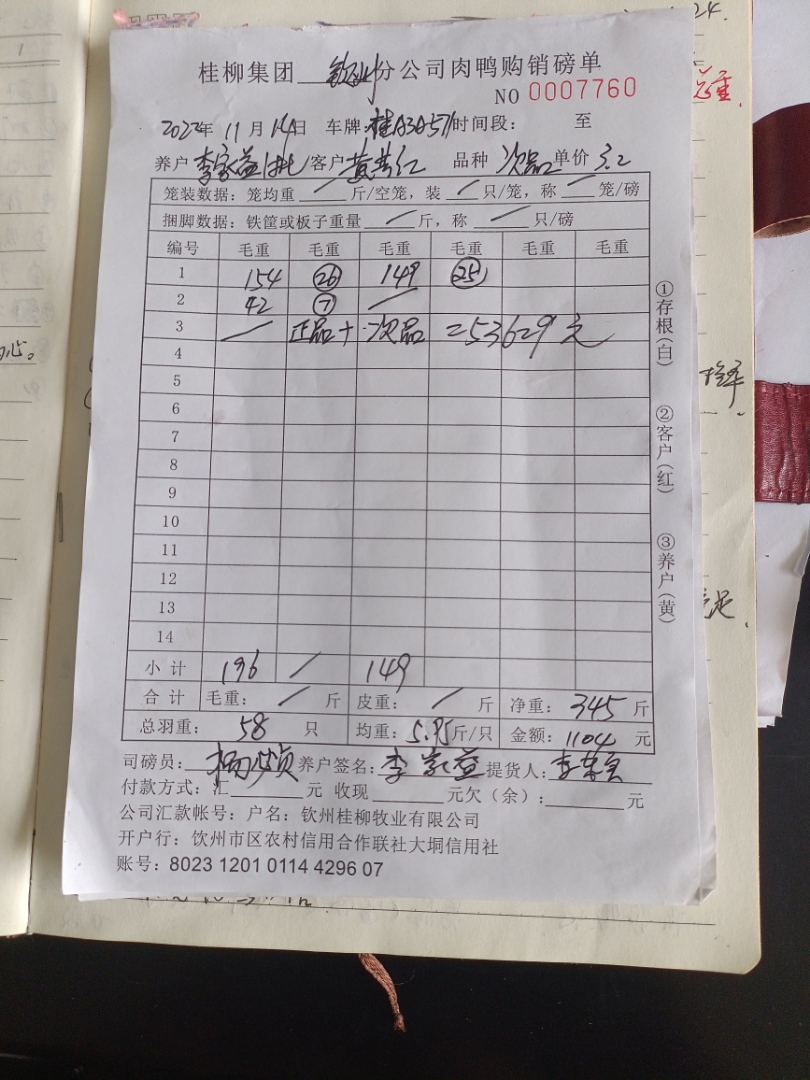 桂柳集团 钦州 分公司肉鸭购销磅单
NO 0007760
2022年 11月 14日 车牌:桂A3A571 时间段: 至
养户 李家益 客户 黄芳江 品种 次品 单价 3.2
笼装数据:笼均重 / 斤/空笼,装 / 只/笼,称 / 笼/磅
捆脚数据:铁筐或板子重量 / 斤,称 / 只/磅
编号 毛重 毛重 毛重 毛重 毛重 毛重
1 154 26 149 25
2 42 7 /
3 / 正品+次品 =53629元
4
5
6
7
8
9
10
11
12
13
14
小计 196 / 149
合计 毛重: / 斤 皮重: / 斤 净重: 345 斤
总羽重: 58 只 均重: 5.95斤/只 金额: 1104 元
司磅员: 养户签名: 李家益 提货人:
付款方式:汇 元 收现 元欠(余): 元
公司汇款帐号:户名:钦州桂柳牧业有限公司
开户行:饮州市区农村信用合作联社大垌信用社
账号:8023 1201 0114 4296 07
①存根(白)
②客户(红)
③养户(黄)
24.
心。